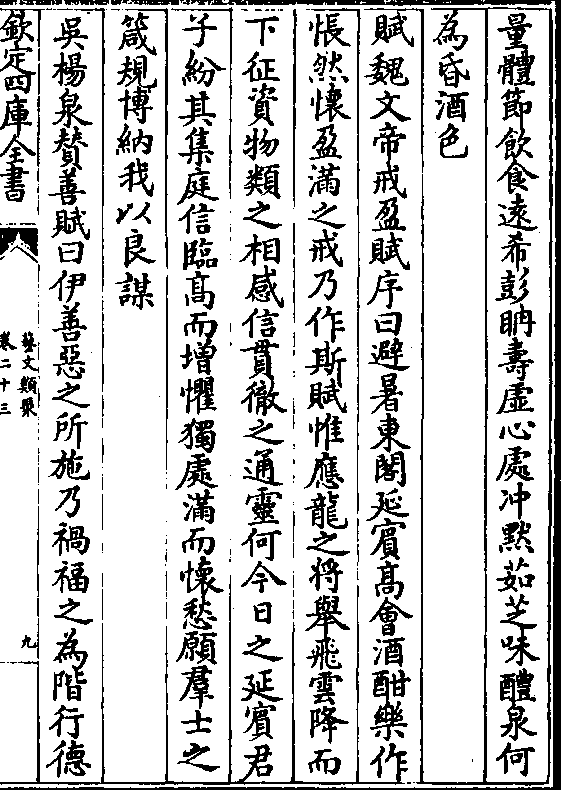 量體節飲食遠希彭聃壽虛心處冲默茹芝味醴泉何
為昏酒色
賦魏文帝戒盈賦序曰避暑東閣延賓高會酒酣樂作
悵然懷盈滿之戒乃作斯賦惟應龍之將舉飛雲降而
下征資物類之相感信貫徹之通靈何今日之延賓君
子紛其集庭信臨高而增懼獨處滿而懷愁願羣士之
箴規博納我以良謀
吳楊泉賛善賦曰伊善惡之所施乃禍福之為階行德
欽定四庫全書
藝文類聚
卷二十三
九